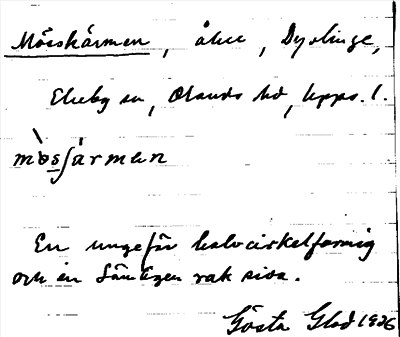 Mösskärmen, åker, Dyslinge,
Ekeby sn, Olands hd, Upps. l.
mösʃärmen
En ungefär halvcirkelformig
och en sida rak sida.
Gösta Glad 1926